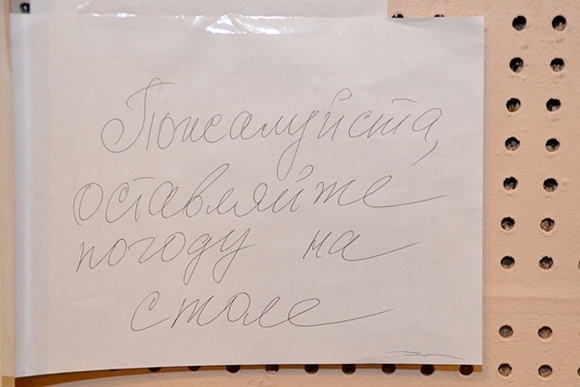 Пожалуйста,
оставляйте
погоду на
столе